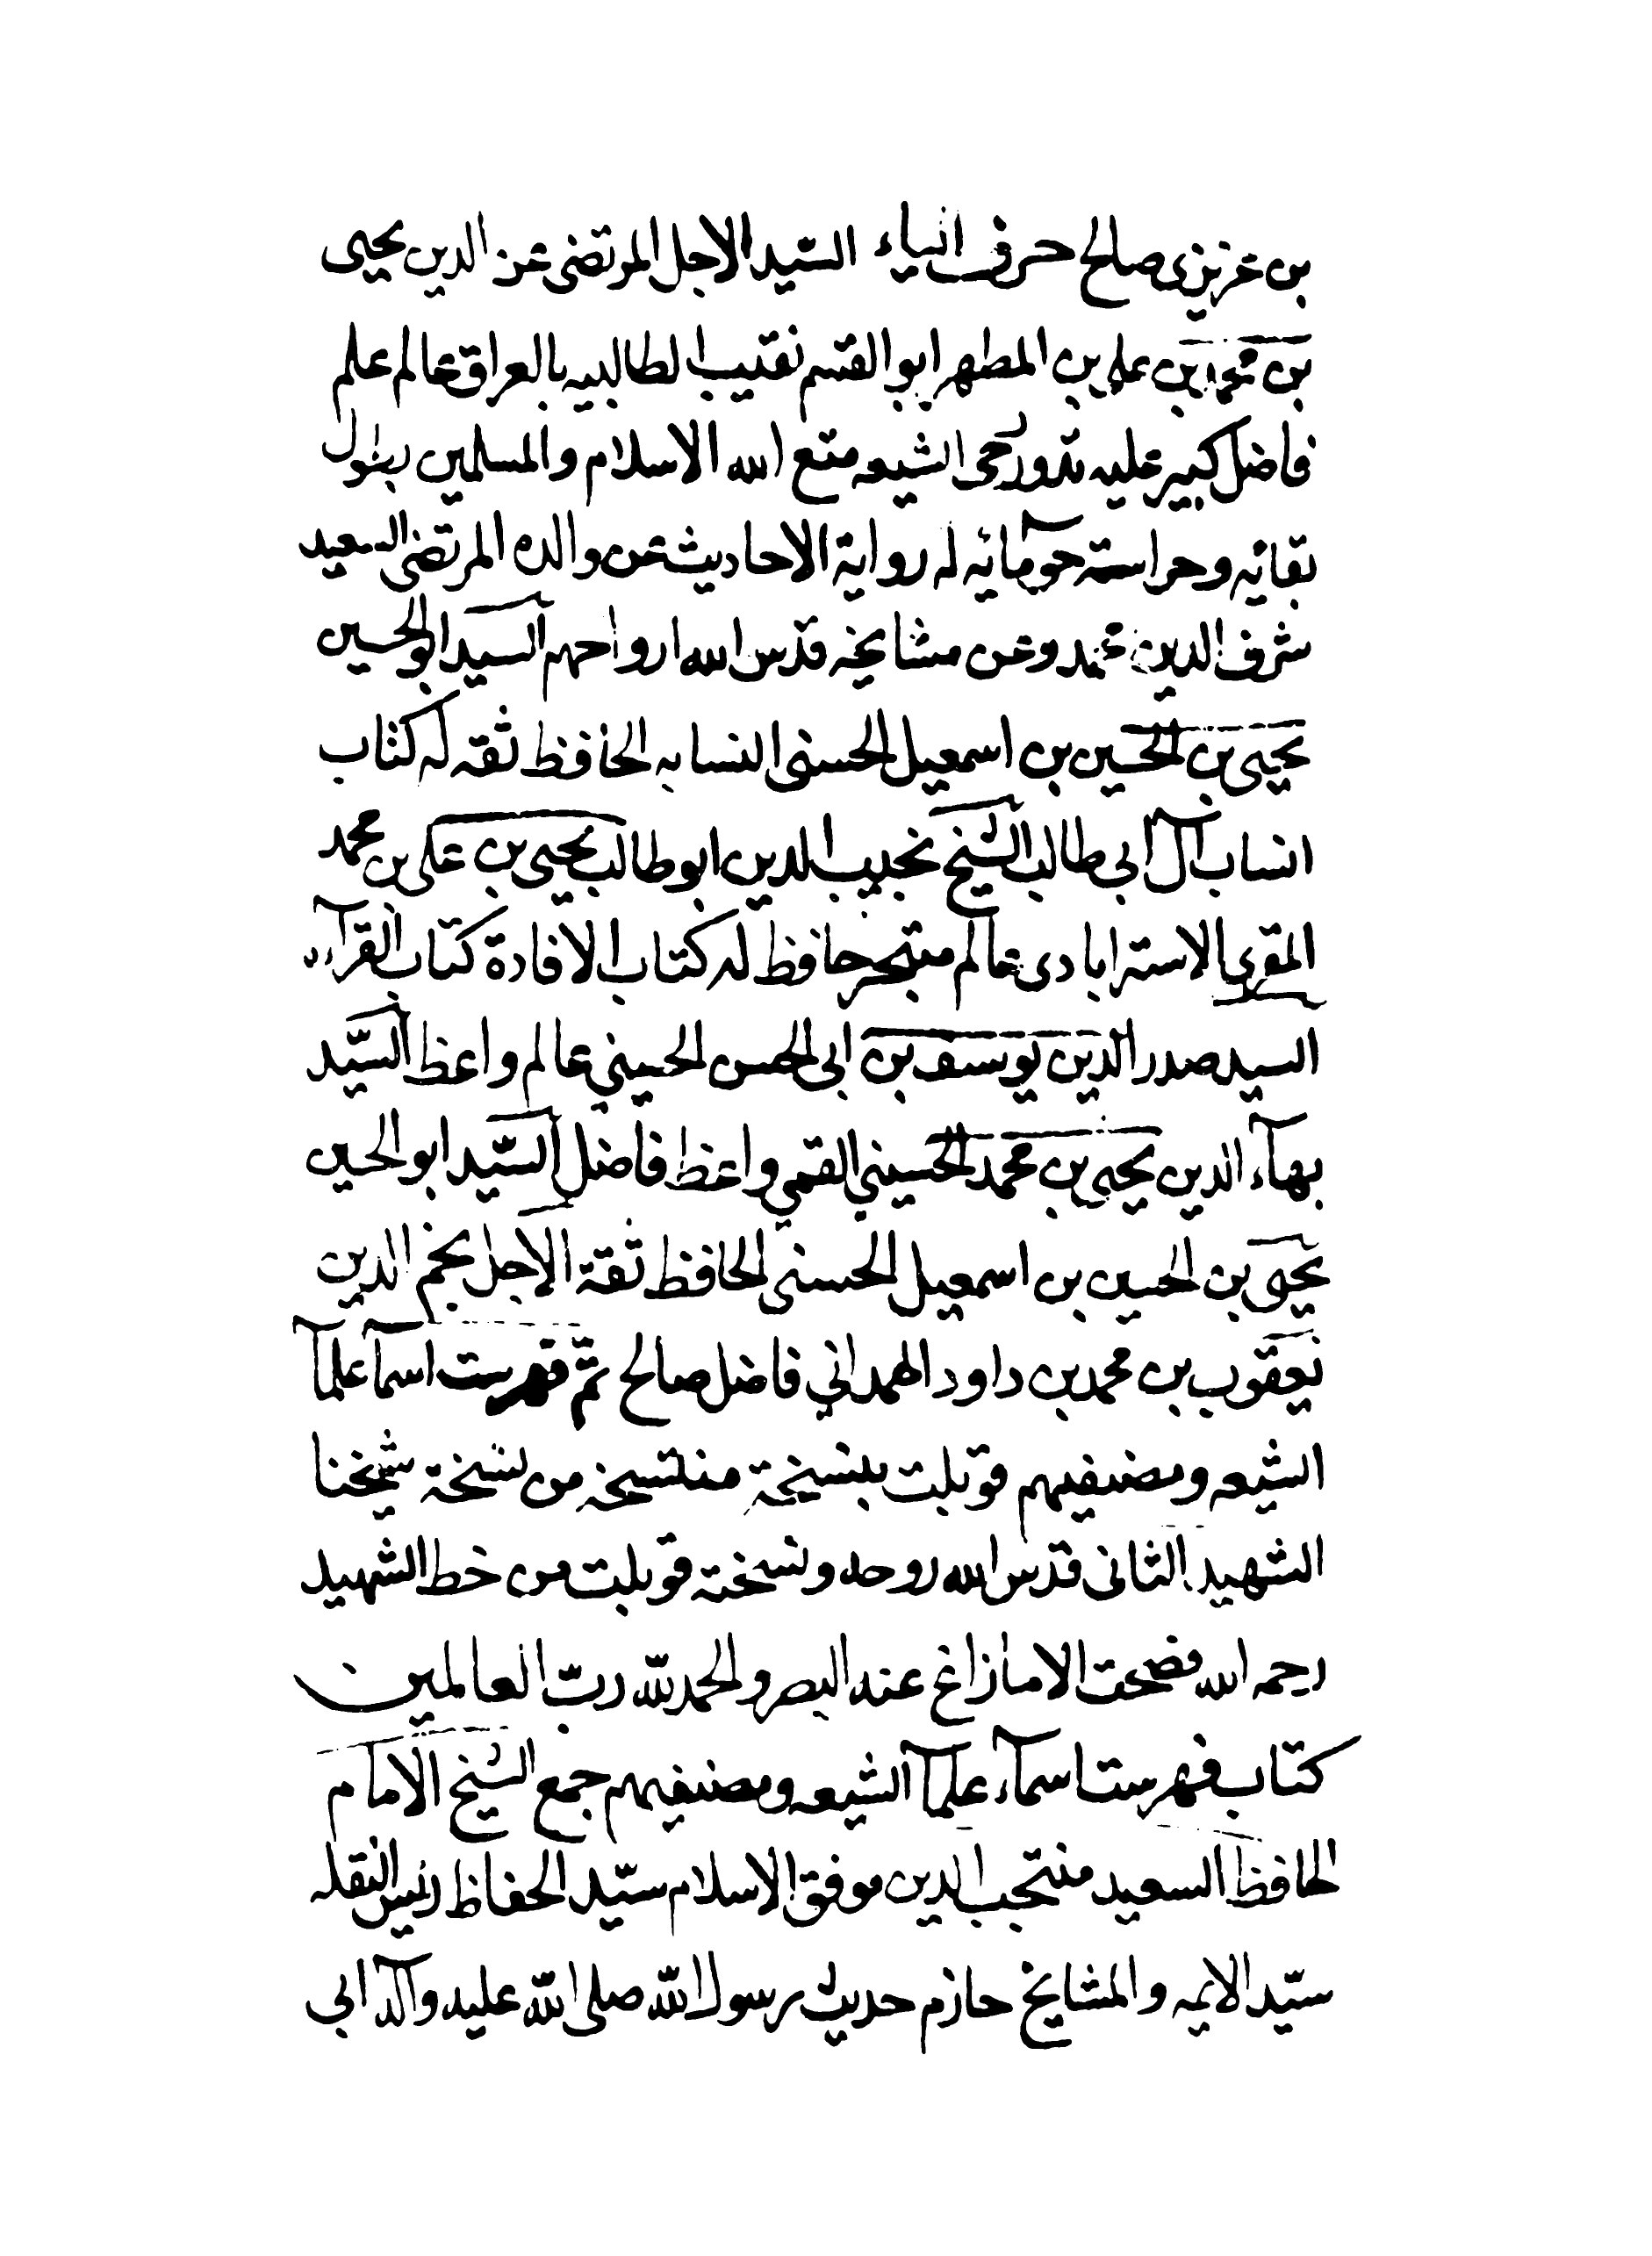 بن عزيزى صالح حرف الياء السّيد الاجل المرتضى عز الدين يحيى
بن محمد بن على بن المطهر ابو القسم نقيب الطالبيه بالعراق عالم علم
فاضل كبير عليه تدور رحى الشيعه متع الله الاسلام والمسلمين بطول
بقائه وحراسة حوبائه له رواية الاحاديث عن والده المرتضى السعيد
شرف الدين محمد وعن مشايخه قدّس الله ارواحهم السيد ابو الحسين
يحيى بن الحسين بن اسمعيل الحسنى النسابه الحافظ ثقه له كتاب
انساب آل ابى طالب الشيخ نجيب الدين ابو طالب يحيى بن على بن محمد
المقرى الاسترابادى عالم متبحر حافظ له كتاب الافادة كتاب القرآءه
السيد صدر الدين يوسف بن ابى الحسن الحسيني عالم واعظ السّيّد
بهآء الدين يحيى بن محمد الحسيني القمي واعظ فاضل السّيّد ابو الحسين
يحيى بن الحسين بن اسمعيل الحسنى الحافظ ثقة الاجل نجم الدين
يعقوب بن محمد بن داود الهمداني فاضل صالح تمّ فهرست اسمآ علمآ
الشيعه ومصنفيهم قوبلت بنسخة منتسخه من نسخة شيخنا
الشهيد الثانى قدّس الله روحه ونسخته قوبلت من خط الشهيد
رحمه الله فصحت الا ما زاغ عنه البصر والحمد للّه ربّ العالمين
كتاب فهرست اسمآء علمآ الشيعه ومصنفيهم جمع الشيخ الامام
الحافظ السعيد منتجب الدين موفق الاسلام سيّد الحفاظ رئيس النقله
سيّد الايمه والمشايخ خازم حديث رسول اللّه صلى اللّه عليه وآله ابى